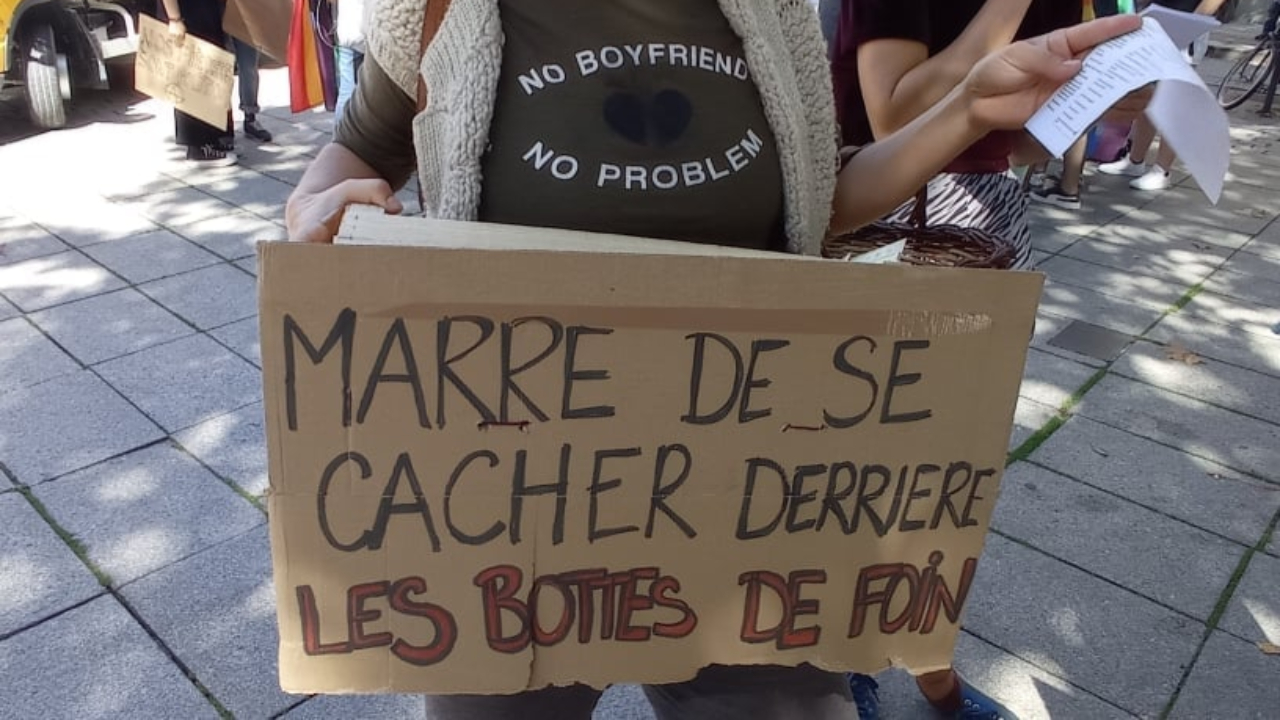 NO BOYFRIEND
NO PROBLEM
MARRE DE SE
CACHER DERRIERE
LES BOTTES DE FOIN